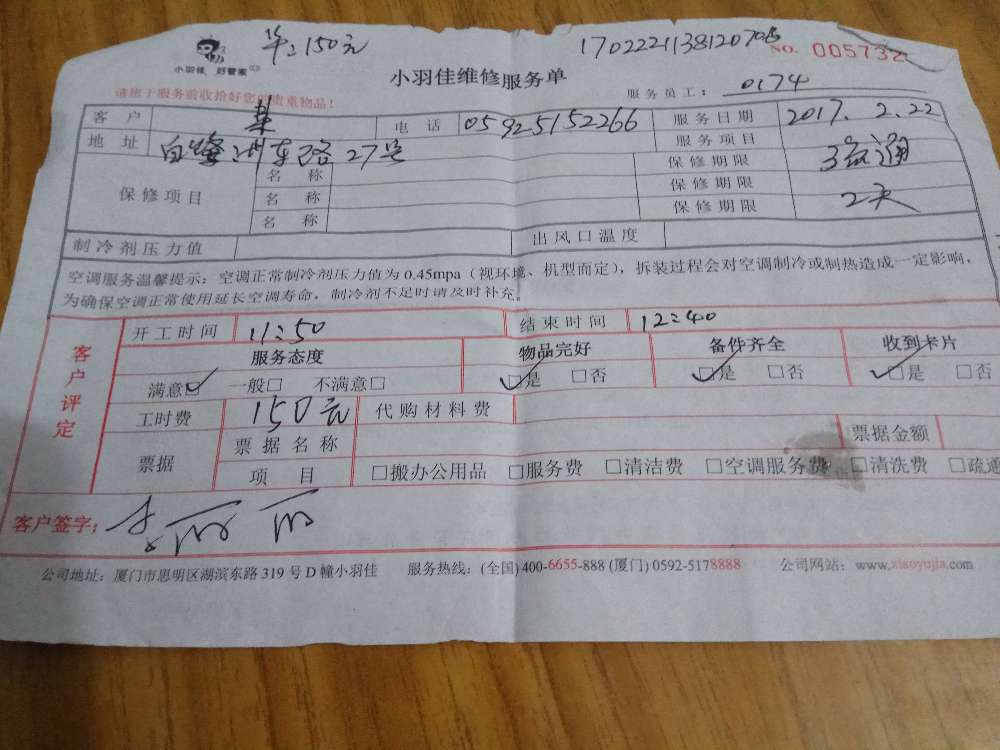 单:150元 170222113812070
小羽佳 好管家 NO. 005732
小羽佳维修服务单
请您于服务前收拾好您的贵重物品! 服务员工: 0174
客户 某 电话 05925152266 服务日期 2017.2.22
地址 白鹭洲东路27号 服务项目
保修项目 名称 保修期限
名称 保修期限
名称 保修期限 2天
制冷剂压力值 出风口温度
空调服务温馨提示:空调正常制冷剂压力值为 0.45mpa(视环境、机型而定),拆装过程会对空调制冷或制热造成一定影响,
为确保空调正常使用延长空调寿命,制冷剂不足时请及时补充。
客户评定
开工时间 11:50 结束时间 12:40
服务态度 物品完好 备件齐全 收到卡片
满意☑ 一般□ 不满意□ ☑是 □否 ☑是 □否 ☑是 □否
工时费 150元 代购材料费
票据 票据名称 票据金额
项目 □搬办公用品 □服务费 □清洁费 □空调服务费 □清洗费 □疏通
客户签字: 李丽丽
公司地址:厦门市思明区湖滨东路 319 号 D 幢小羽佳 服务热线:(全国)400-6655-888 (厦门) 0592-5178888 公司网站:www.xiaoyujia.com